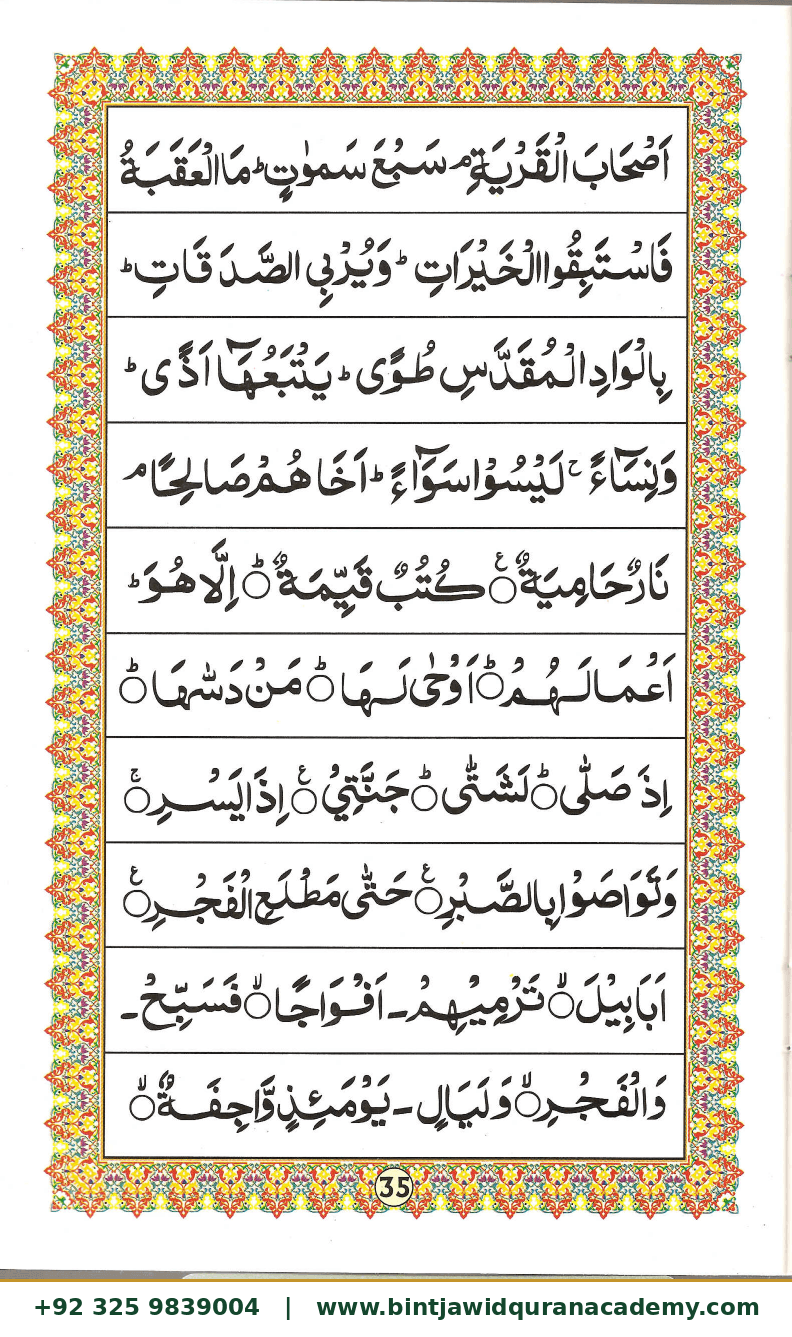 اَصْحَابَ الْقَرْيَةِۘ سَبْعَ سَمٰوٰتٍؕ مَا الْعَقَبَةُ
فَاسْتَبِقُوا الْخَيْرَاتِؕ وَيُرْبِي الصَّدَقَاتِؕ
بِالْوَادِ الْمُقَدَّسِ طُوًىؕ يَتْبَعُهَاۤ اَذًىؕ
وَنِسَآءًۚ لَيْسُوْا سَوَآءًؕ اَخَاهُمْ صَالِحًاۘ
نَارٌ حَامِيَةٌ۝ۧ كُتُبٌ قَيِّمَةٌ۝ؕ اِلَّا هُوَؕ
اَعْمَالَهُمْ۝ؕ اَوْحٰى لَهَا۝ؕ مَنْ دَسّٰهَا۝ؕ
اِذَ صَلّٰى۝ؕ لَشَتّٰى۝ؕ جَنَّتِيْ۝ۧ اِذَا يَسْرِ۝ۚ
وَتَوَاصَوْا بِالصَّبْرِ۝ۧ حَتّٰى مَطْلَعِ الْفَجْرِ۝ۧ
اَبَابِيْلَ۝ۙ تَرْمِيْهِمْ ـ اَفْوَاجًا۝ۙ فَسَبِّحْ ـ
وَالْفَجْرِ۝ۙ وَلَيَالٍ ـ يَوْمَئِذٍ وَّاجِفَةٌ۝ۙ
35
+92 325 9839004 | www.bintjawidquranacademy.com